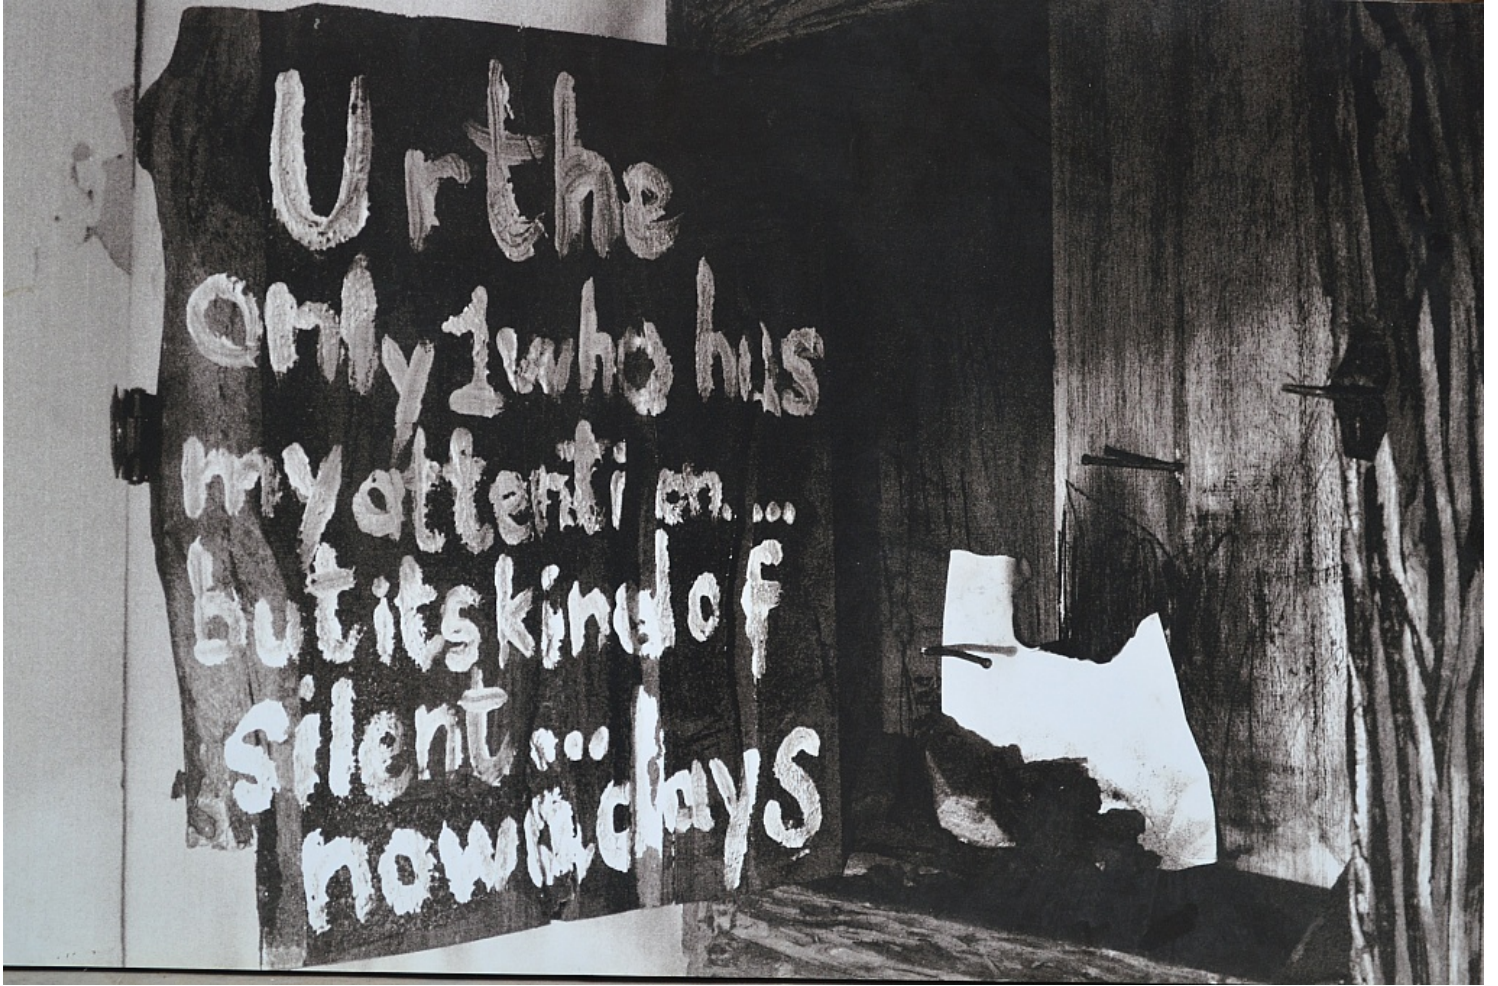 U r the
only 1 who has
my attention...
but its kind of
silent...
nowadays